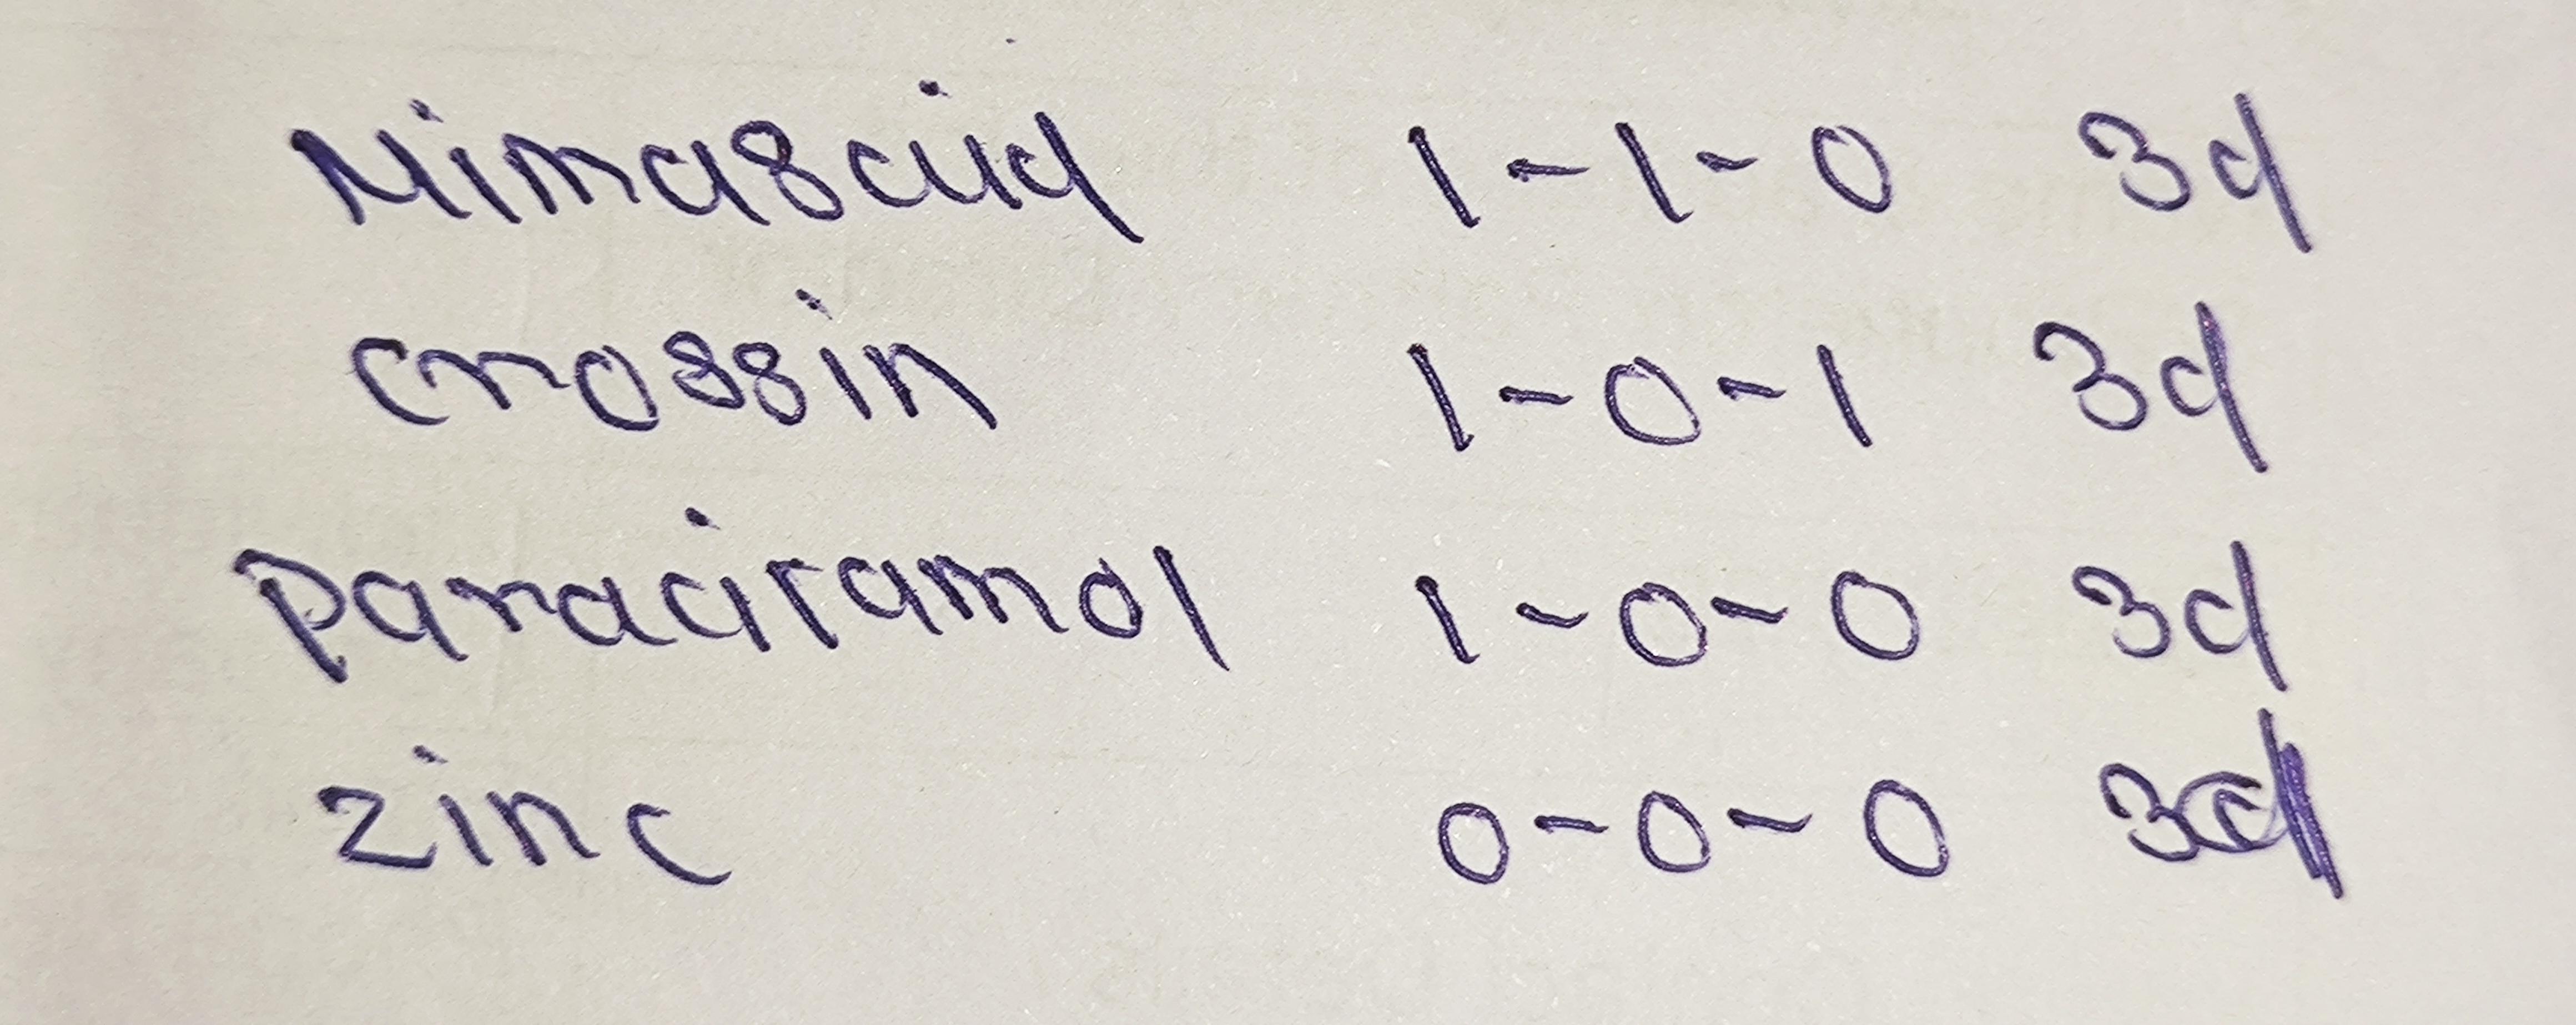 Nimascid 1-1-0 3d
crossin 1-0-1 3d
Paraciramol 1-0-0 3d
zinc 0-0-0 3d